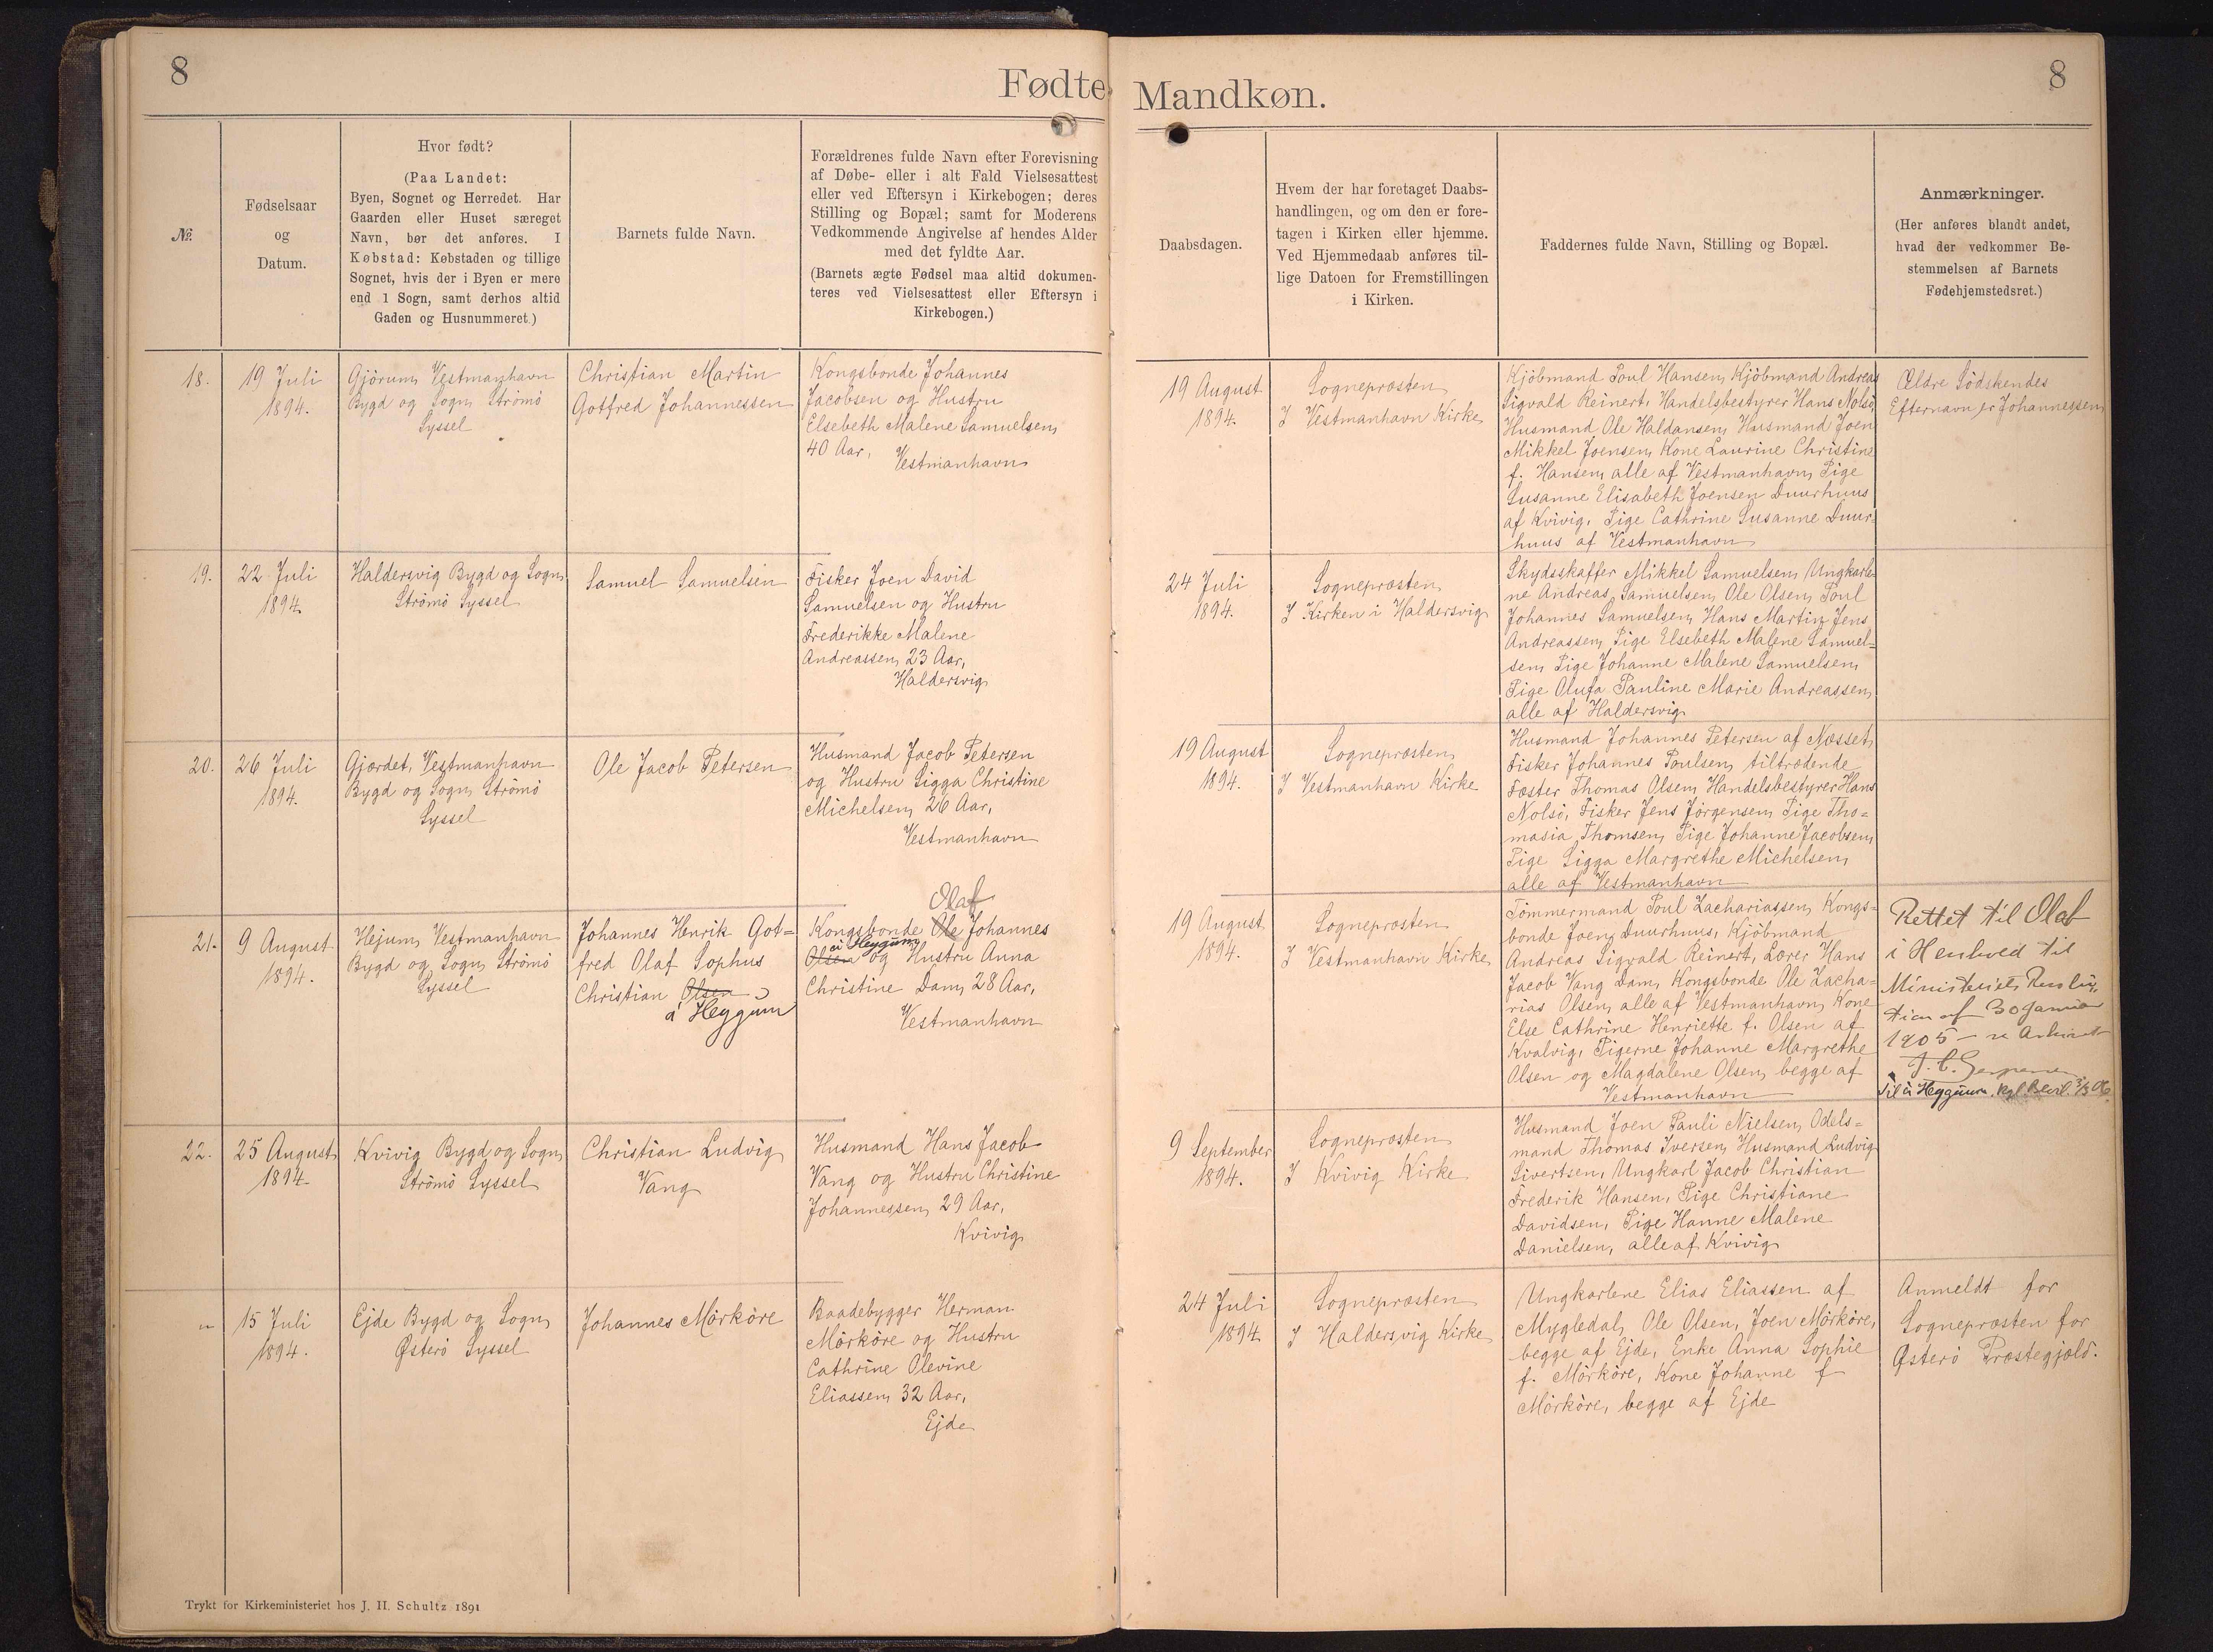 8
Fødte
Mandkøn.
8
№.
Fødselsaar
og
Datum.
Hvor født?
(Paa Landet:
Byen, Sognet og Herredet. Har
Gaarden eller Huset særeget
Navn, bør det anføres. I
Købstad: Købstaden og tillige
Sognet, hvis der i Byen er mere
end 1 Sogn, samt derhos altid
Gaden og Husnummeret.)
Barnets fulde Navn.
Forældrenes fulde Navn efter Forevisning
af Døbe- eller i alt Fald Vielsesattest
eller ved Eftersyn i Kirkebogen; deres
Stilling og Bopæl; samt for Moderens
Vedkommende Angivelse af hendes Alder
med det fyldte Aar.
(Barnets ægte Fødsel maa altid dokumen-
teres ved Vielsesattest eller Eftersyn i
Kirkebogen.)
Daabsdagen.
Hvem der har foretaget Daabs-
handlingen, og om den er fore-
tagen i Kirken eller hjemme.
Ved Hjemmedaab anføres til-
lige Datoen for Fremstillingen
i Kirken.
Faddernes fulde Navn, Stilling og Bopæl.
Anmærkninger.
(Her anføres blandt andet,
hvad der vedkommer Be-
stemmelsen af Barnets
Fødehjemstedsret.)
18.
19 Juli
1894.
Gjörum, Vestmanhavn
Bygd og Sogn, Strömö
Syssel
Christian Martin
Gotfred Johannessen
Kongsbonde Johannes
Jacobsen og Hustru
Elsebeth Malene Samuelsen,
40 Aar,
Vestmanhavn
19 August
1894.
Sognepræsten
I Vestmanhavn Kirke
Kjöbmand Poul Hansen, Kjöbmand Andreas
Sigvald Reinert, Handelsbestyrer Hans Nolsö,
Husmand Ole Haldansen, Husmand Joen
Mikkel Joensen, Kone Laurine Christine
f. Hansen, alle af Vestmanhavn, Pige
Susanne Elisabeth Joensen Duurhuus
af Kvivig, Pige Cathrine Susanne Duur-
huus af Vestmanhavn
Ældre Södskendes
Efternavn er Johannessen
19.
22 Juli
1894.
Haldersvig Bygd og Sogn,
Strömö Syssel
Samuel Samuelsen
Fisker Joen David
Samuelsen og Hustru
Frederikke Malene
Andreassen, 23 Aar,
Haldersvig
24 Juli
1894.
Sognepræsten
I Kirken i Haldersvig
Skydsskaffer Mikkel Samuelsen, Ungkarle-
ne Andreas Samuelsen, Ole Olsen, Poul
Johannes Samuelsen, Hans Martin Jens
Andreassen, Pige Elsebeth Malene Samuel=
sen, Pige Johanne Malene Samuelsen,
Pige Olufa Pauline Marie Andreassen,
alle af Haldersvig
20.
26 Juli
1894.
Gjærdet, Vestmanhavn
Bygd og Sogn, Strömö
Syssel
Ole Jacob Petersen
Husmand Jacob Petersen
og Hustru Sigga Christine
Michelsen, 26 Aar,
Vestmanhavn
19 August
1894.
Sognepræsten
I Vestmanhavn Kirke
Husmand Johannes Petersen af Næsset,
Fisker Johannes Poulsen, tiltrædende
Fæster Thomas Olsen, Handelsbestyrer Hans
Nolsö, Fisker Jens Jörgensen, Pige Tho=
masia Thomsen, Pige Johanne Jacobsen,
Pige Sigga Margrethe Michelsen,
alle af Vestmanhavn
21.
9 August
1894.
Hejum, Vestmanhavn
Bygd og Sogn, Strömö
Syssel
Johannes Henrik Got=
fred Olaf Sophus
Christian Olsen
á Heygum
Olaf
Kongsbonde Ole Johannes
á Heygum
Olsen og Hustru Anna
Christine Dam, 28 Aar,
Vestmanhavn
19 August
1894.
Sognepræsten
I Vestmanhavn Kirke
Tömmermand Poul Zachariassen, Kongs=
bonde Joen Duurhuus, Kjöbmand
Andreas Sigvald Reinert, Lærer Hans
Jacob Vang Dam, Kongsbonde Ole Zacha=
rias Olsen, alle af Vestmanhavn, Kone
Else Cathrine Henriette f. Olsen af
Kvalvig, Pigerne Johanne Margrethe
Olsen og Magdalene Olsen, begge af
Vestmanhavn
Rettet til Olaf
i Henhold til
Ministeriets Resolu-
tion af 30 Januar
1905
Til á Heygum. Kgl. Bevil.
22.
25 August
1894.
Kvivig Bygd og Sogn,
Strömö Syssel
Christian Ludvig
Vang
Husmand Hans Jacob
Vang og Hustru Christine
Johannessen, 29 Aar,
Kvivig
9 September
1894.
Sognepræsten
I Kvivig Kirke
Husmand Joen Pauli Nielsen, Odels=
mand Thomas Iversen, Husmand Ludvig
Sivertsen, Ungkarl Jacob Christian
Frederik Hansen, Pige Christiane
Davidsen, Pige Hanne Malene
Danielsen, alle af Kvivig
"
15 Juli
1894.
Ejde Bygd og Sogn,
Østerö Syssel
Johannes Mörköre
Baadebygger Herman
Mörköre og Hustru
Cathrine Olevine
Eliassen, 32 Aar,
Ejde
24 Juli
1894
Sognepræsten
I Haldersvig Kirke
Ungkarlene Elias Eliassen af
Mygledal, Ole Olsen, Joen Mörköre,
begge af Ejde, Enke Anna Sophie
f. Mörköre, Kone Johanne f
Mörköre, begge af Ejde
Anmeldt for
Sognepræsten for
Østerö Præstegjæld.
Trykt for Kirkeministeriet hos J. H. Schultz 1891